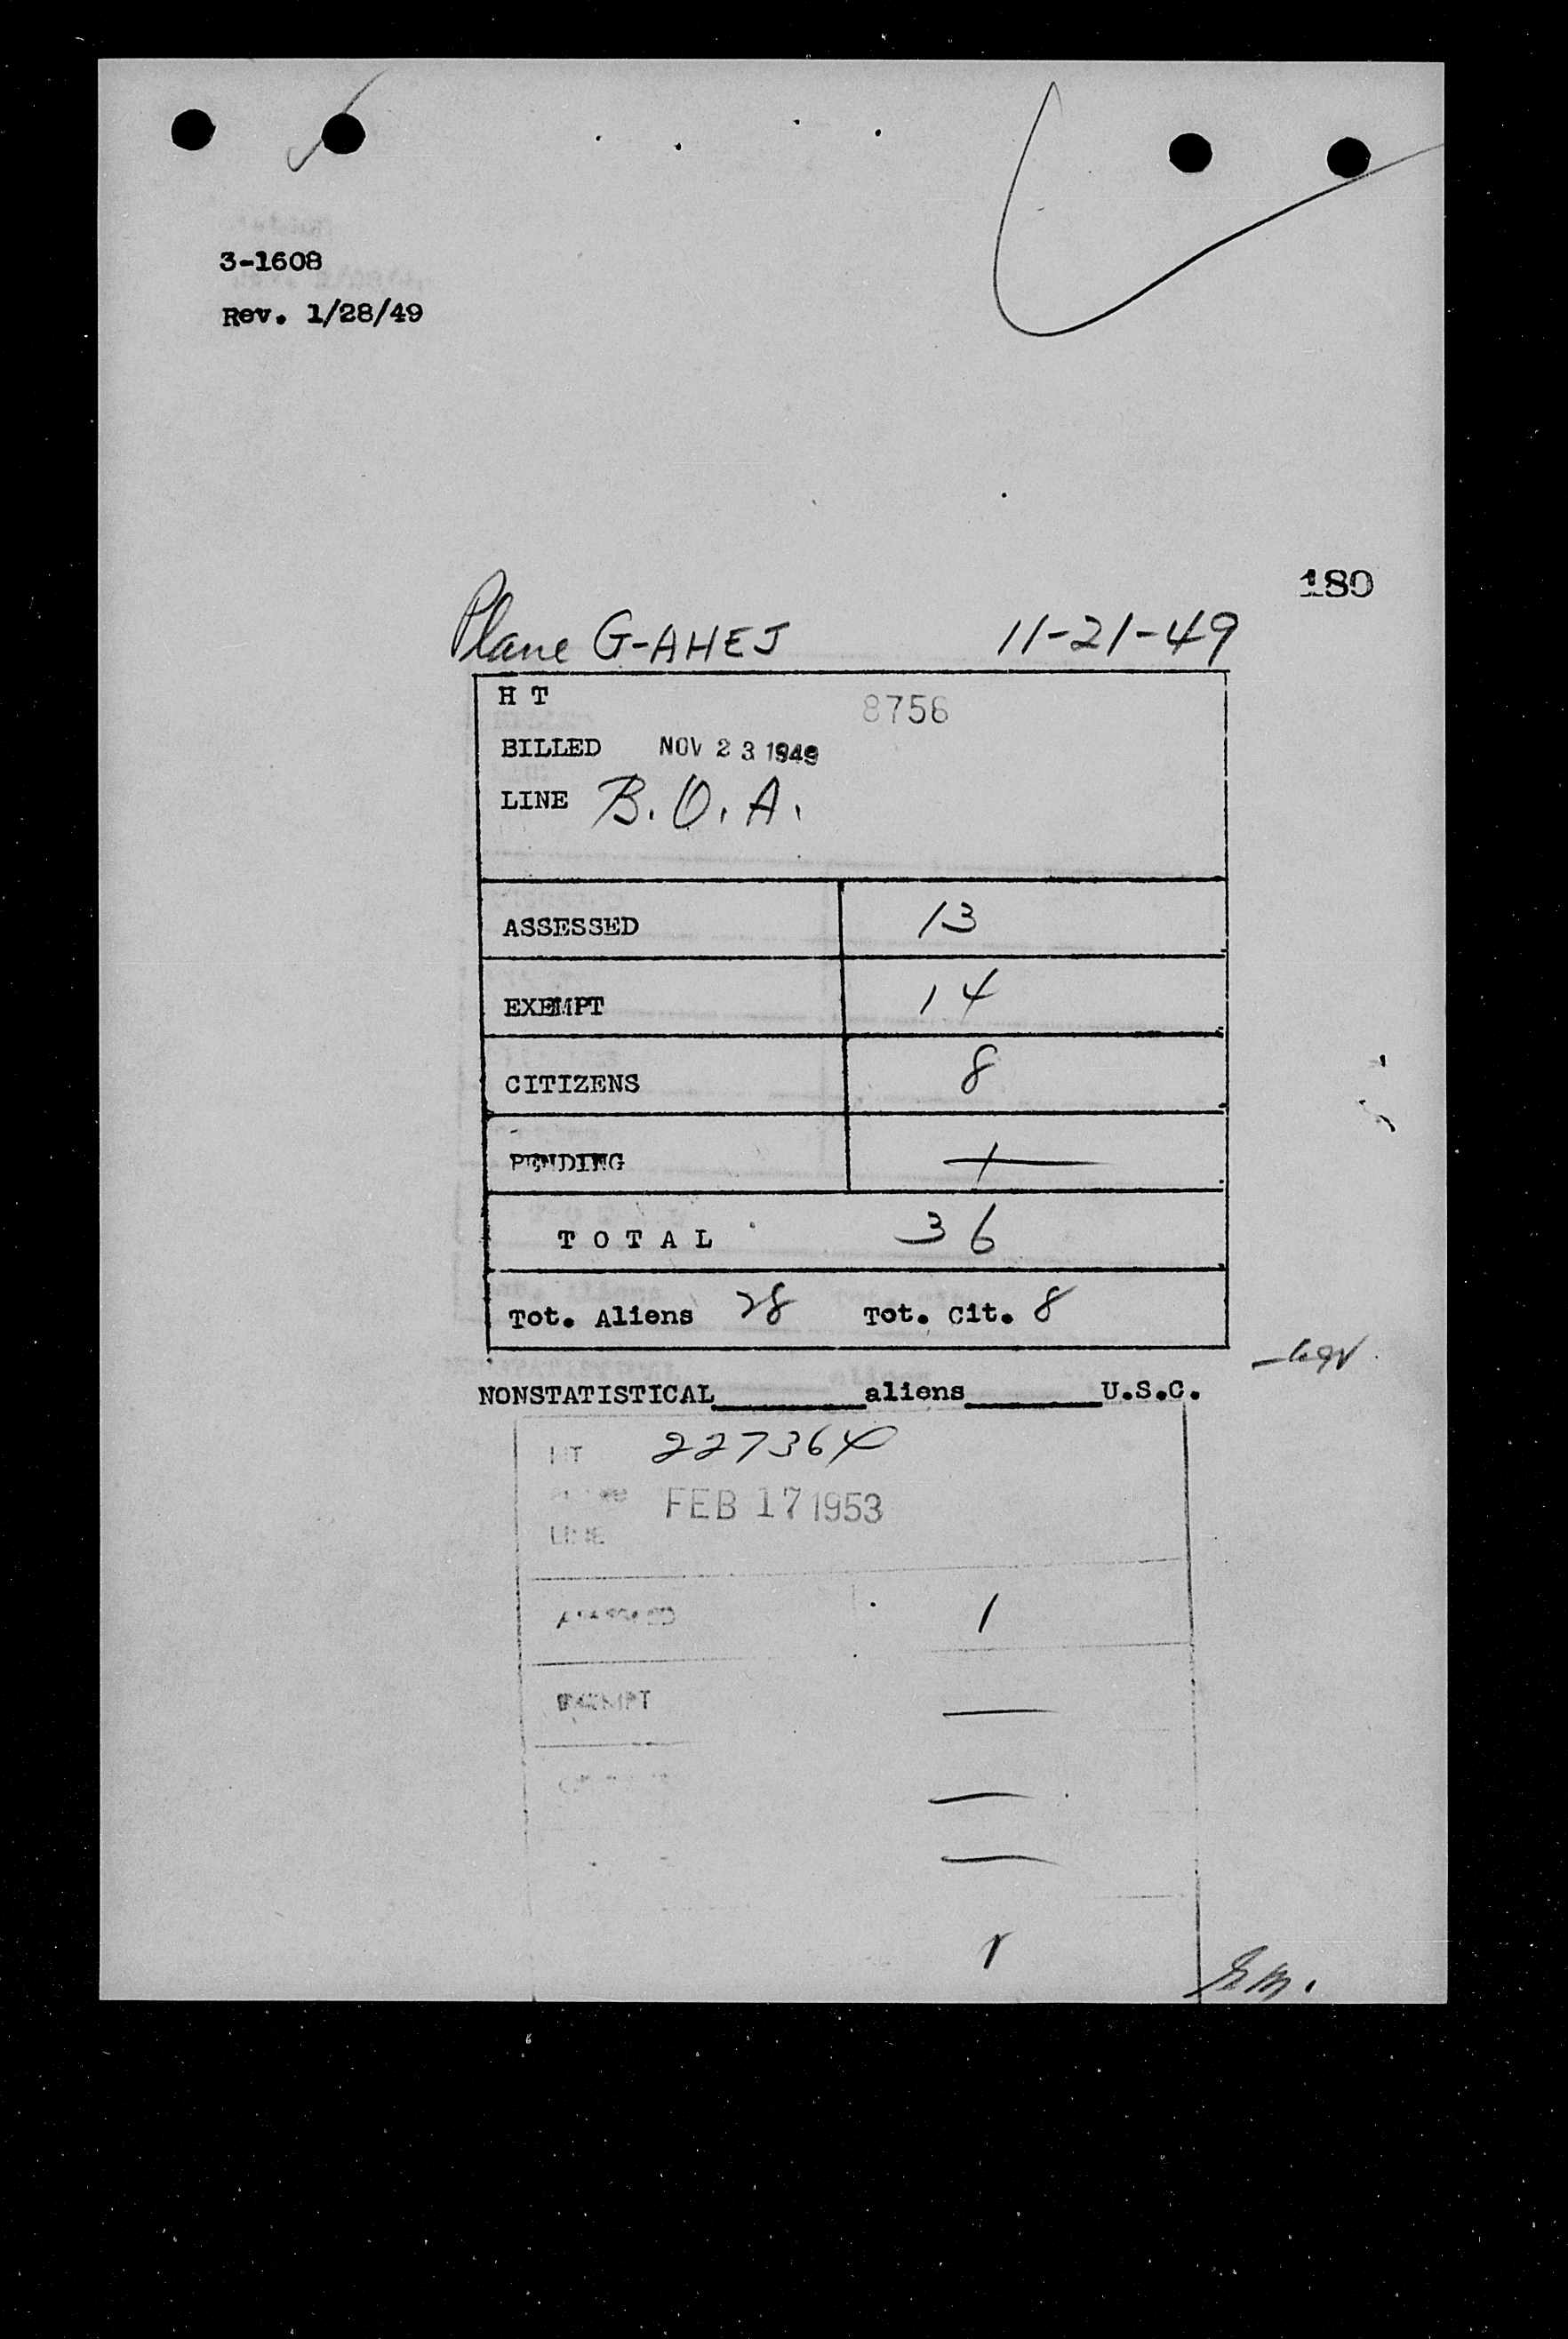 3-1608
Rev. 1/28/49
180
Plane G-AHEJ 11-21-49
H T 8756
BILLED NOV 23 1949
LINE B.O.A.
ASSESSED 13
EXEMPT 14
CITIZENS 8
PENDING 1
T O T A L 36
Tot. Aliens 28 Tot. Cit. 8
NONSTATISTICAL________aliens________U.S.C.
HT 227364
FEB 17 1953
LINE
ASSESSED 1
EXEMPT —
—
—